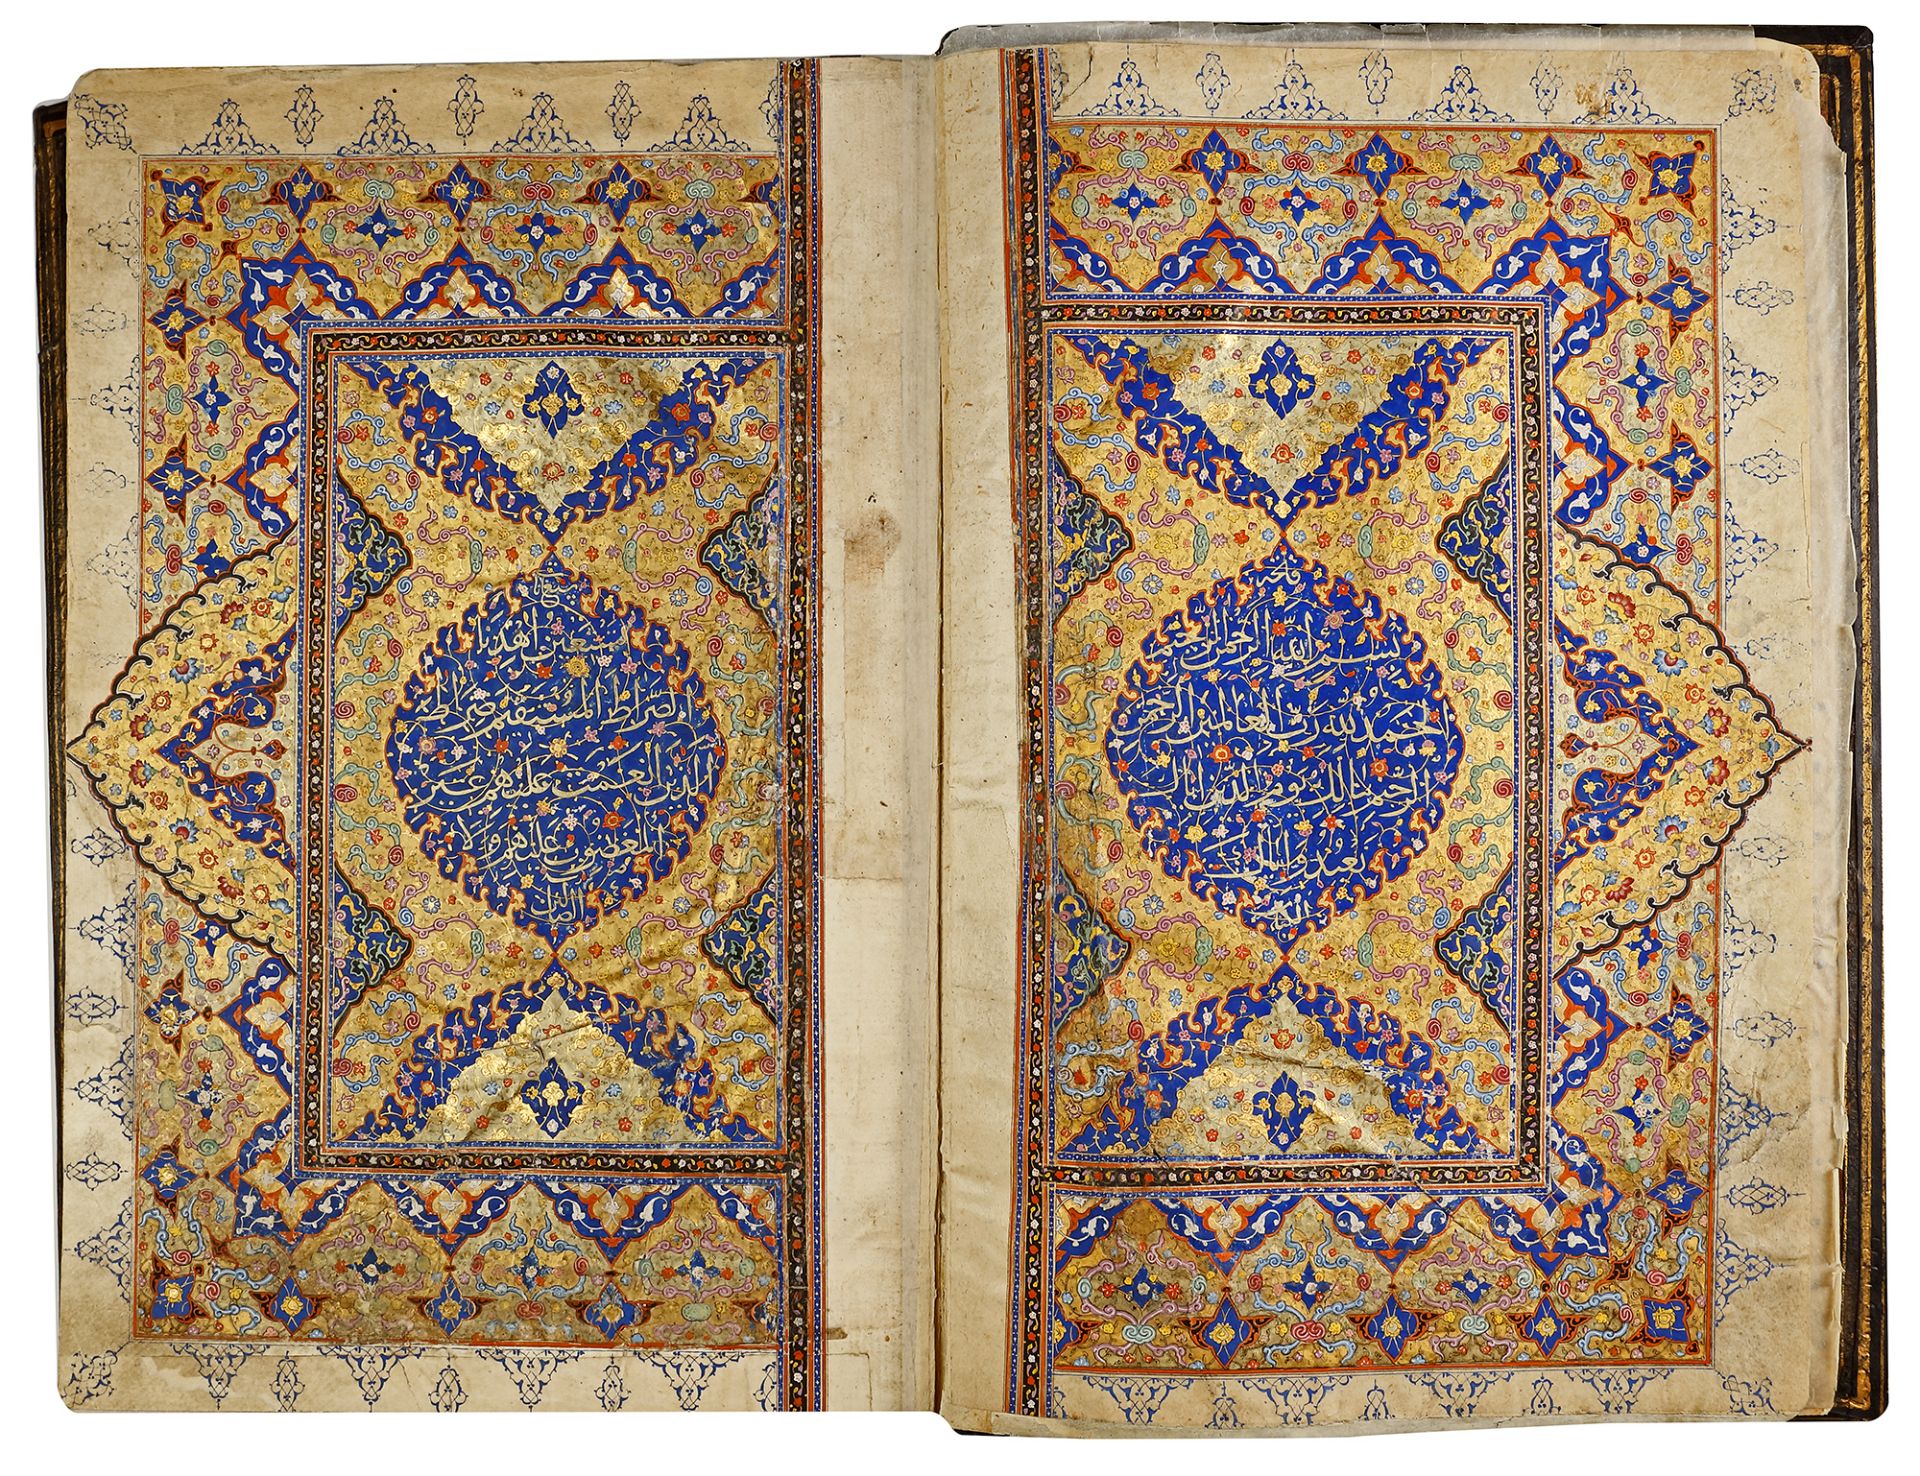 فاتحة
بسم الله الرحمن الرحيم
الحمد لله رب العالمين الرحمن
الرحيم ملك يوم الدين اياك
نعبد واياك
نستعين اهدنا
الصراط المستقيم صراط
الذين انعمت عليهم غير
المغضوب عليهم ولا
الضالين